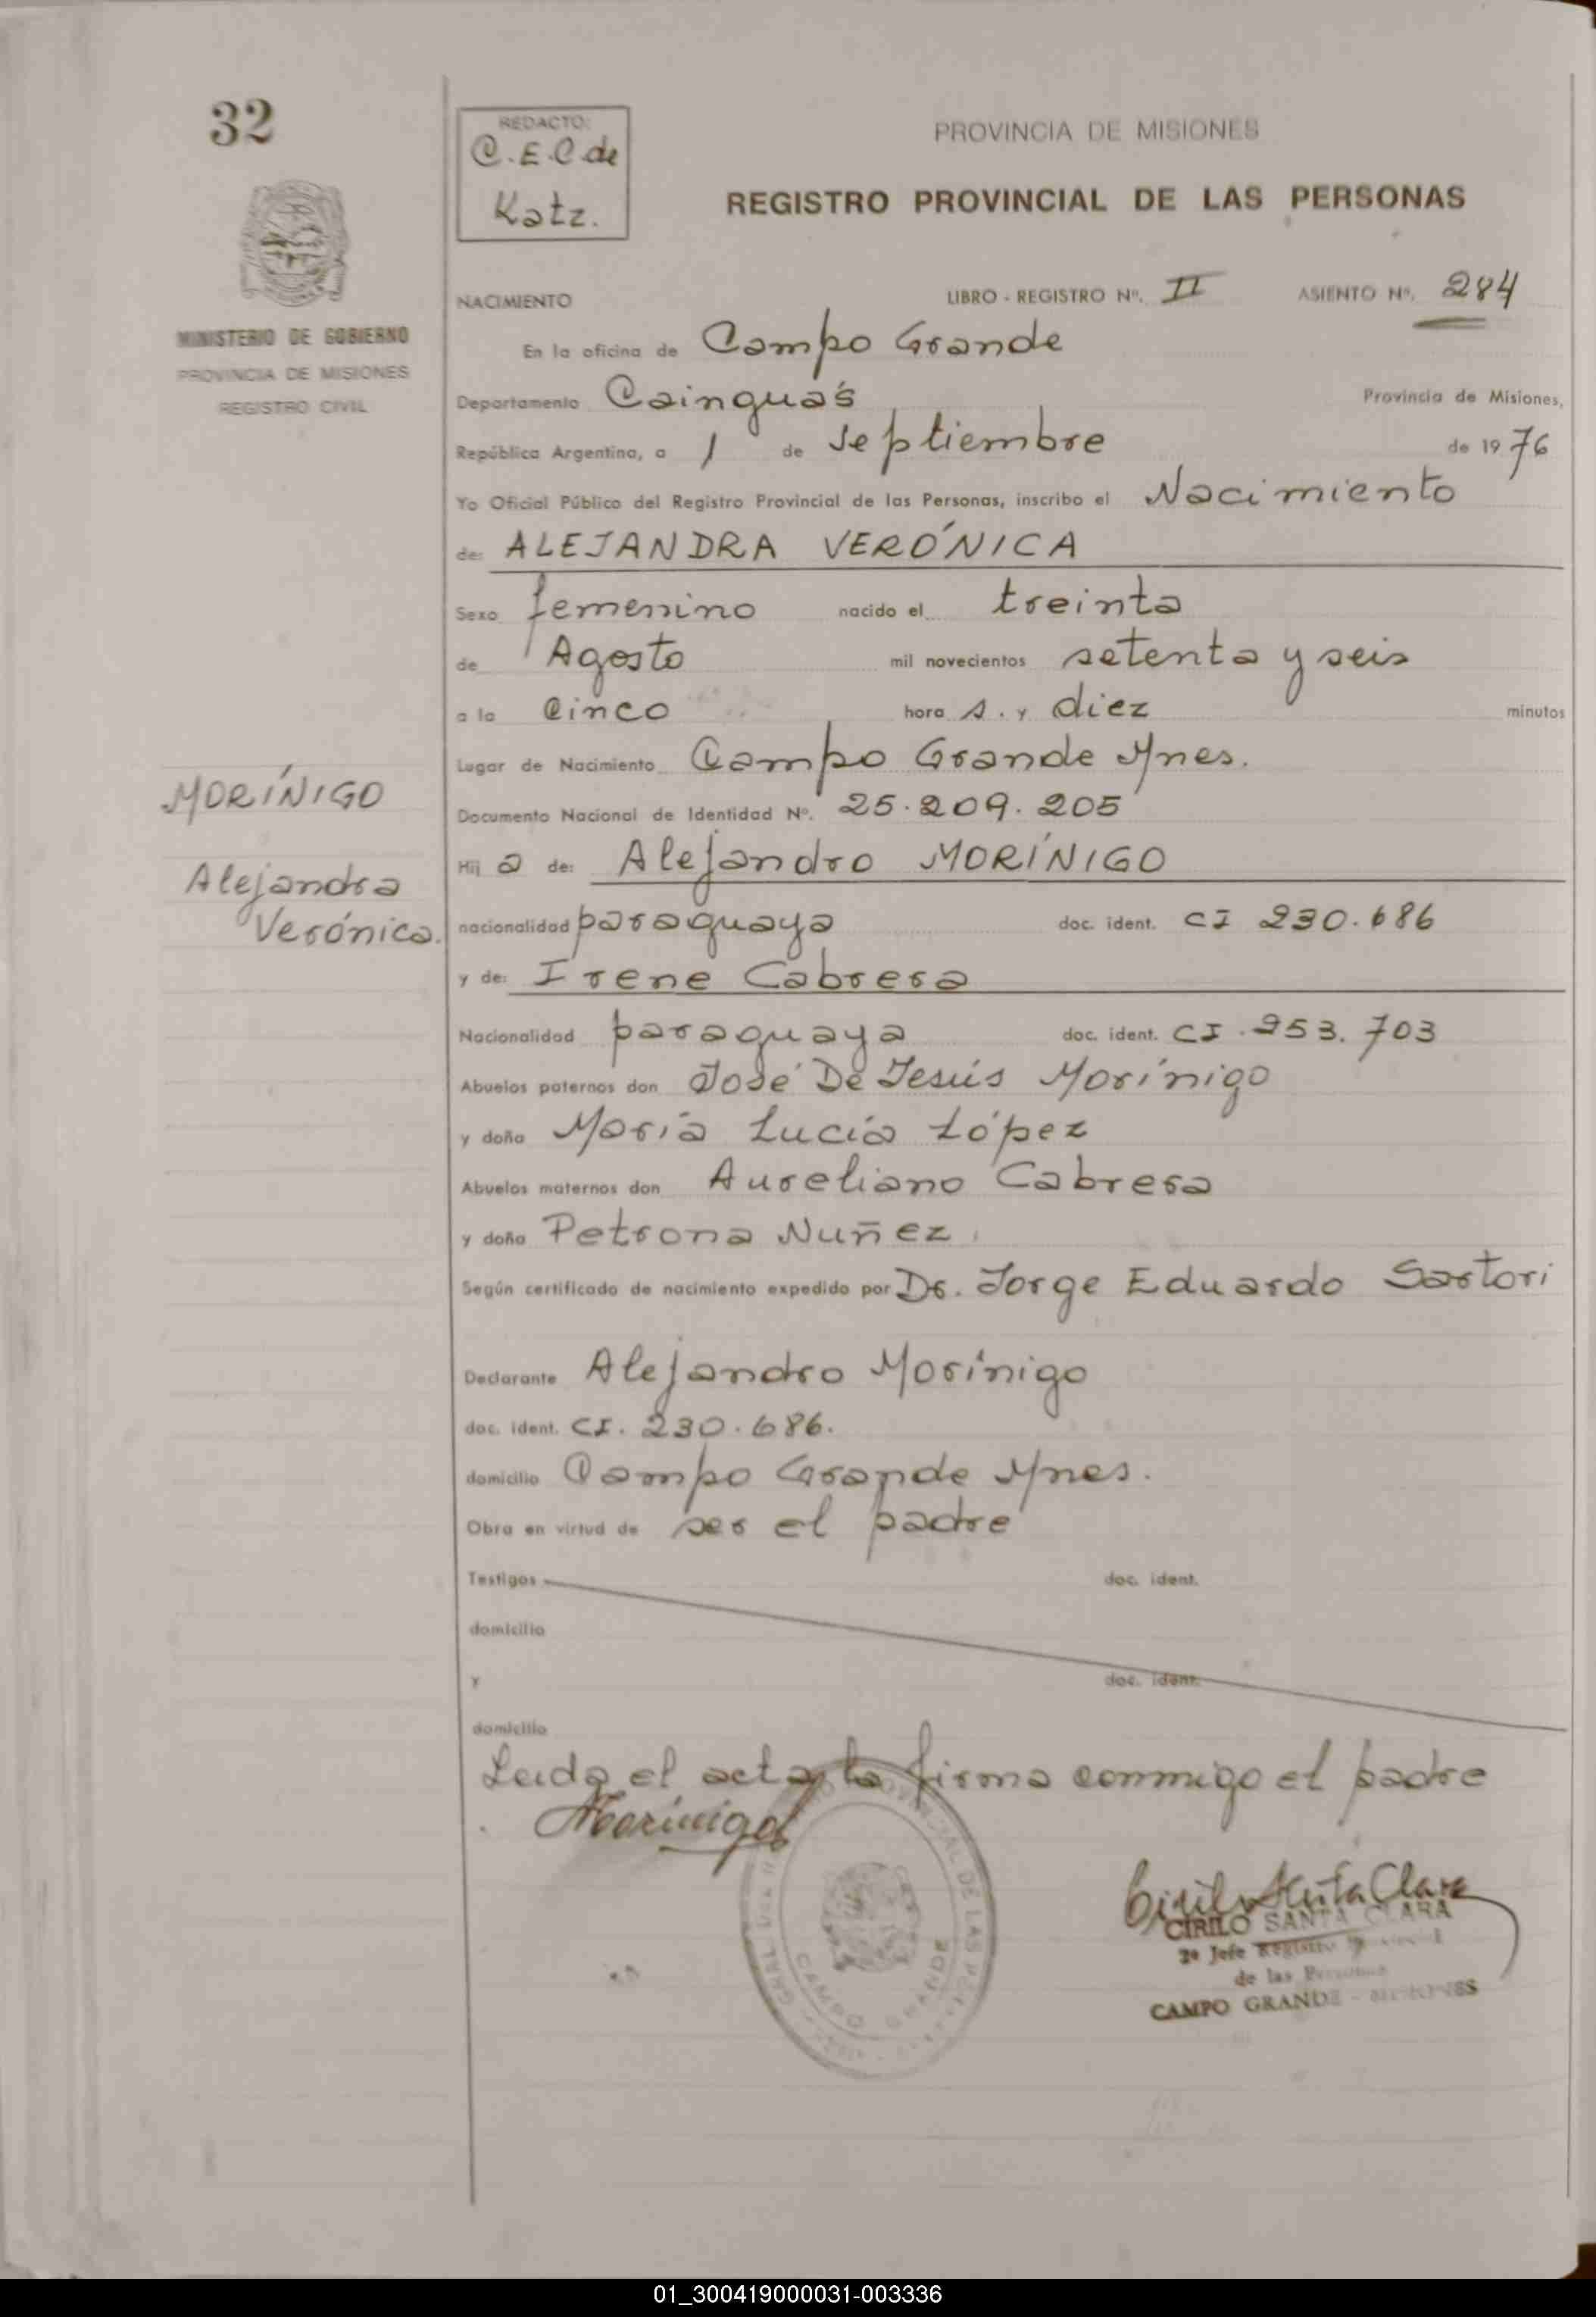 32
REDACTO:
C.E.C de
Katz.
PROVINCIA DE MISIONES
REGISTRO PROVINCIAL DE LAS PERSONAS
MINISTERIO DE GOBIERNO
PROVINCIA DE MISIONES
REGISTRO CIVIL
NACIMIENTO LIBRO - REGISTRO Nº. II ASIENTO Nº. 284
En la oficina de Campo Grande
Departamento Cainguás Provincia de Misiones,
República Argentina, a 1 de Septiembre de 1976
Yo Oficial Público del Registro Provincial de las Personas, inscribo el Nacimiento
de: ALEJANDRA VERÓNICA
Sexo femenino nacido el treinta
de Agosto mil novecientos setenta y seis
a la cinco hora s. y diez minutos
Lugar de Nacimiento Campo Grande Mnes.
MORÍNIGO
Alejandra
Verónica.
Documento Nacional de Identidad Nº. 25.209.205
Hij a de: Alejandro MORÍNIGO
nacionalidad paraguaya doc. ident. CI 230.686
y de: Irene Cabrera
Nacionalidad paraguaya doc. ident. CI.253.703
Abuelos paternos don José De Jesús Morínigo
y doña María Lucía López
Abuelos maternos don Aureliano Cabrera
y doña Petrona Nuñez
Según certificado de nacimiento expedido por Dr. Jorge Eduardo Sartori
Declarante Alejandro Morínigo
doc. ident. CI. 230.686.
domicilio Campo Grande Mnes.
Obra en virtud de ser el padre
Testigos doc. ident.
domicilio
y doc. ident.
domicilio
Leida el acta, la firma conmigo el padre
. AMorínigo
Cirilo Santa Clara
CIRILO SANTA CLARA
2º Jefe Registro Provincial
de las Personas
CAMPO GRANDE - MISIONES
PROVINCIAL DE LAS
CAMPO GRANDE
01_300419000031-003336